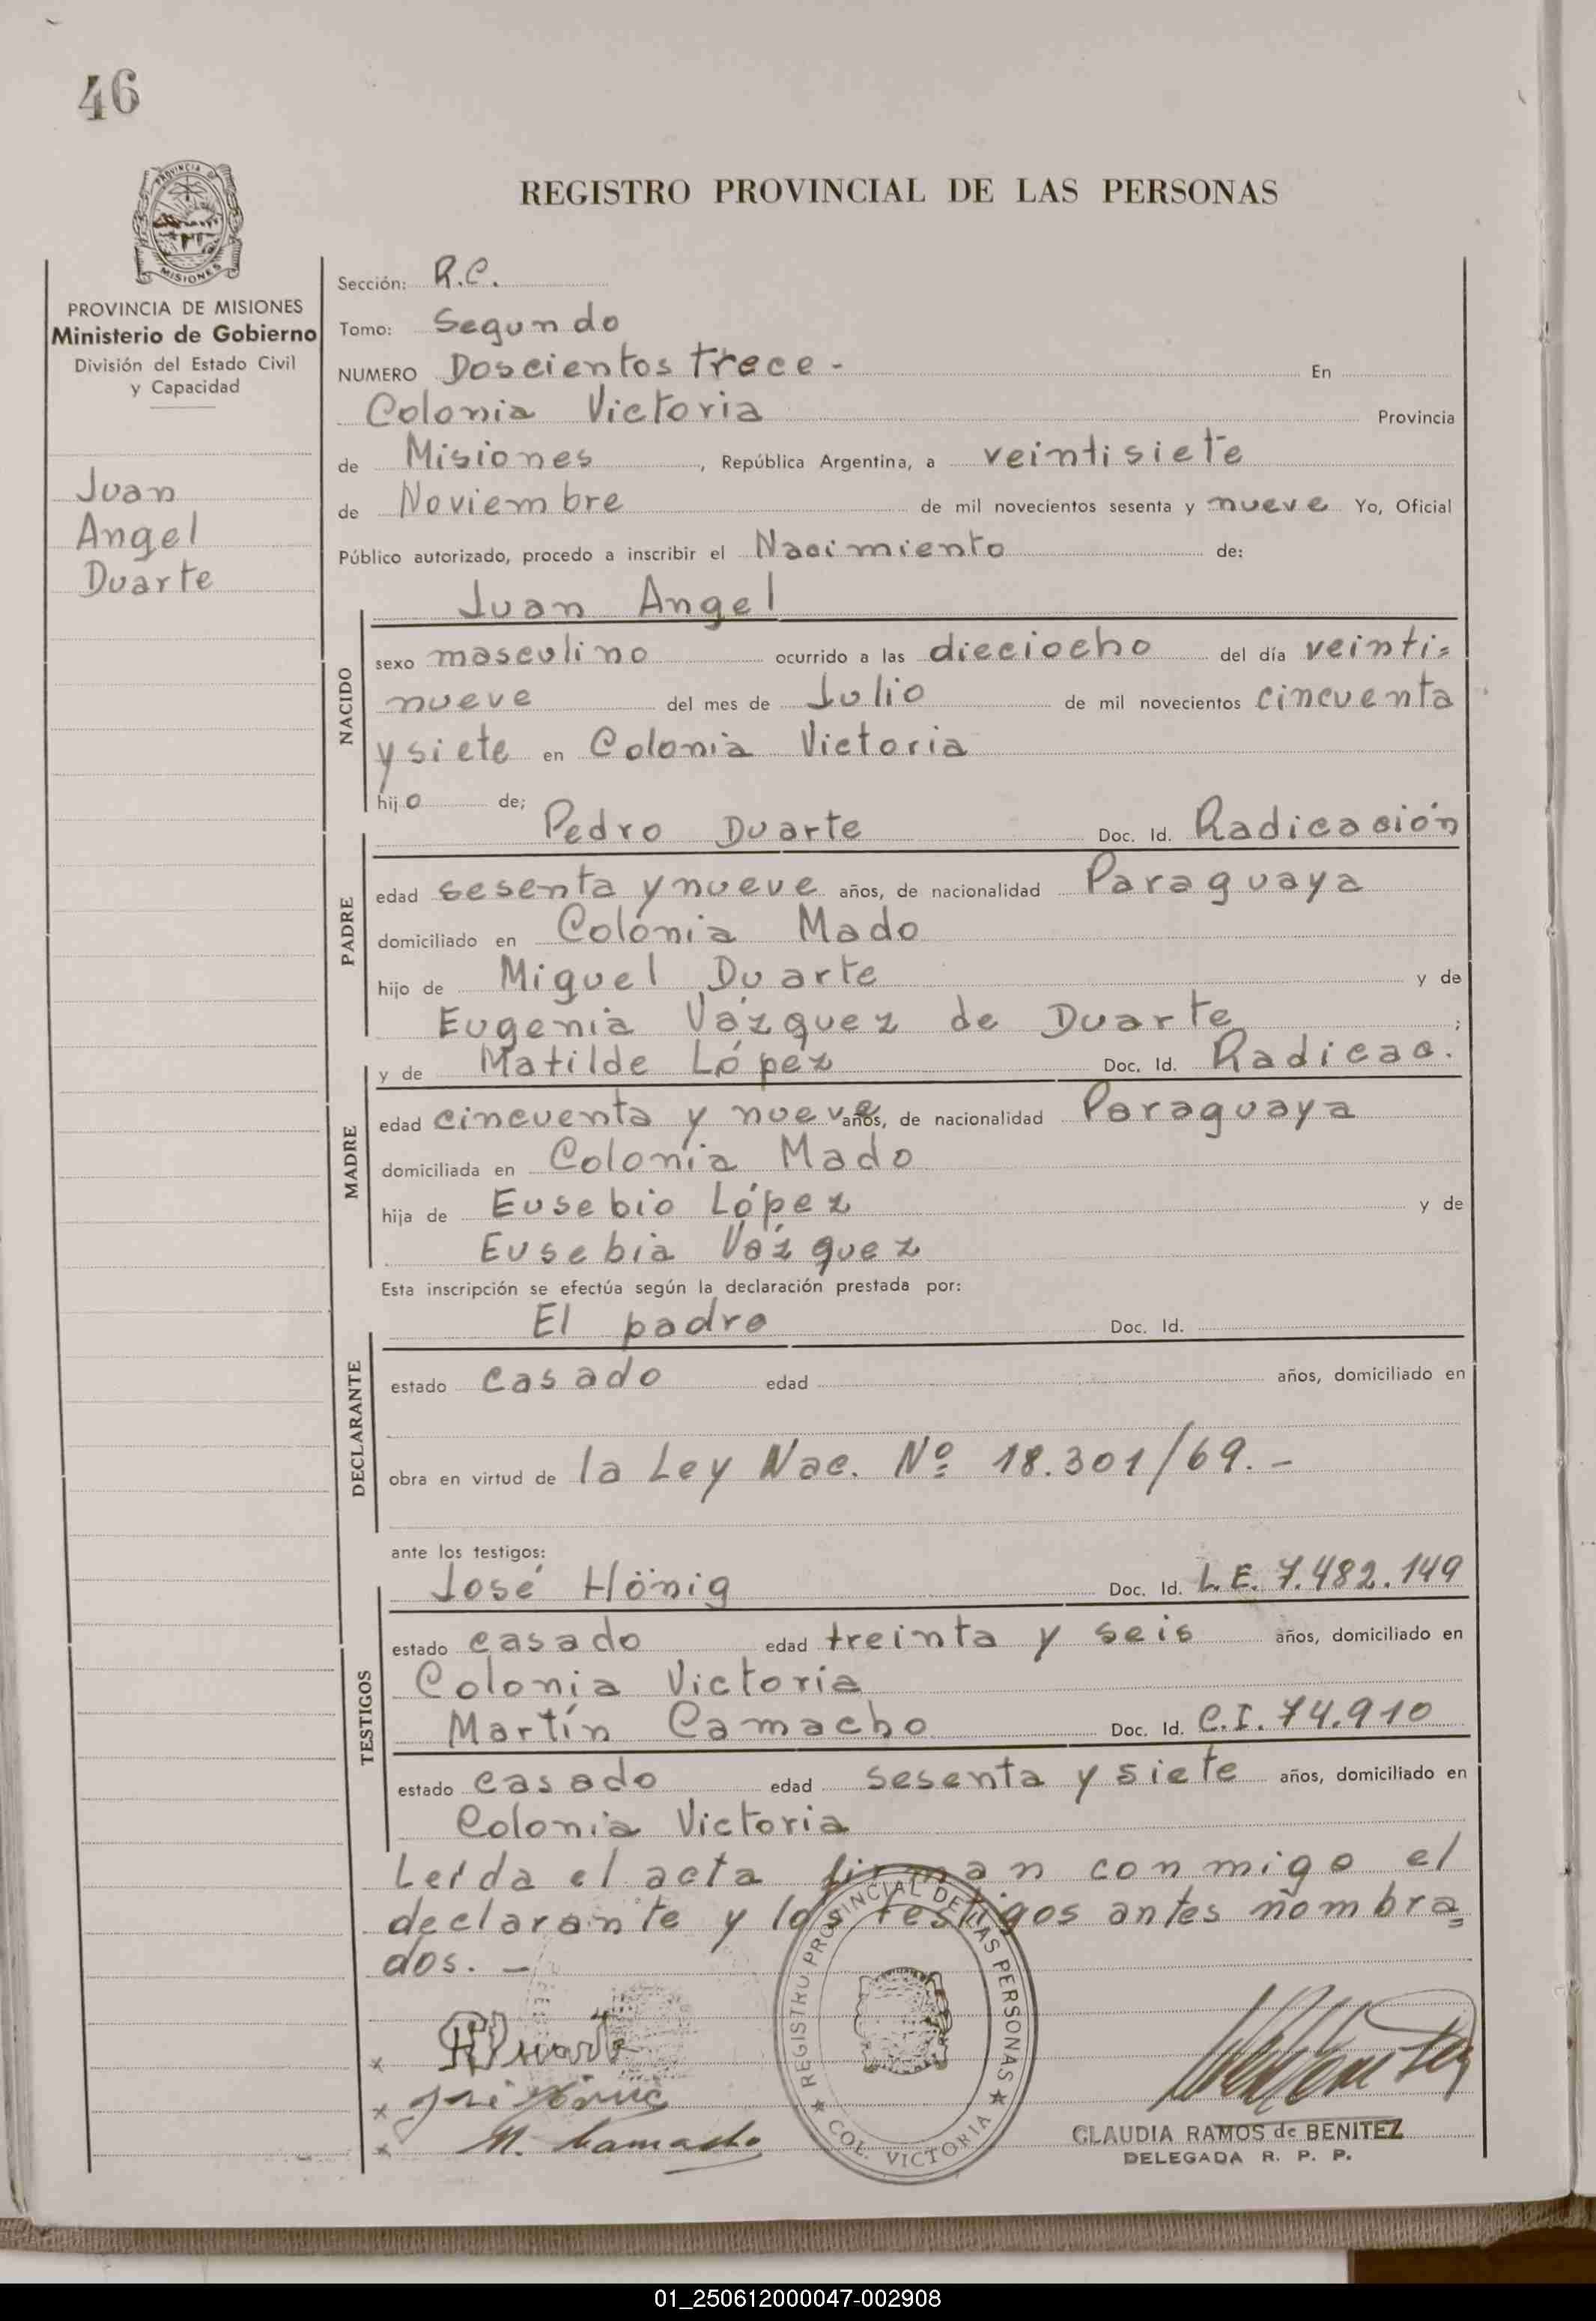 46
PROVINCIA DE
MISIONES
REGISTRO PROVINCIAL DE LAS PERSONAS
PROVINCIA DE MISIONES
Ministerio de Gobierno
División del Estado Civil
y Capacidad
Juan
Angel
Duarte
Sección: R.C.
Tomo: Segundo
NUMERO Doscientos trece - En
Colonia Victoria Provincia
de Misiones, República Argentina, a veintisiete
de Noviembre de mil novecientos sesenta y nueve Yo, Oficial
Público autorizado, procedo a inscribir el Nacimiento de:
Juan Angel
NACIDO
sexo masculino ocurrido a las dieciocho del día veinti=
nueve del mes de Julio de mil novecientos cincuenta
y siete en Colonia Victoria
hijo de;
Pedro Duarte Doc. Id. Radicación
PADRE
edad sesenta y nueve años, de nacionalidad Paraguaya
domiciliado en Colonia Mado
hijo de Miguel Duarte y de
Eugenia Vázquez de Duarte ;
y de Matilde López Doc. Id. Radicac.
MADRE
edad cincuenta y nueve años, de nacionalidad Paraguaya
domiciliada en Colonia Mado
hija de Eusebio López y de
Eusebia Vázquez
Esta inscripción se efectúa según la declaración prestada por:
El padre Doc. Id.
DECLARANTE
estado casado edad años, domiciliado en
obra en virtud de la Ley Nac. Nº 18.301/69. -
ante los testigos:
José Hönig Doc. Id. L.E. 7.482.149
TESTIGOS
estado casado edad treinta y seis años, domiciliado en
Colonia Victoria
Martín Camacho Doc. Id. C.I. 74.910
estado casado edad sesenta y siete años, domiciliado en
Colonia Victoria
Leída el acta firman conmigo el
declarante y los testigos antes nombra=
dos. -
REGISTRO PROVINCIAL DE LAS PERSONAS
★ COL. VICTORIA ★
x Duarte
x José Hönig
x M. Camacho
CLAUDIA RAMOS de BENITEZ
DELEGADA R. P. P.
01_250612000047-002908